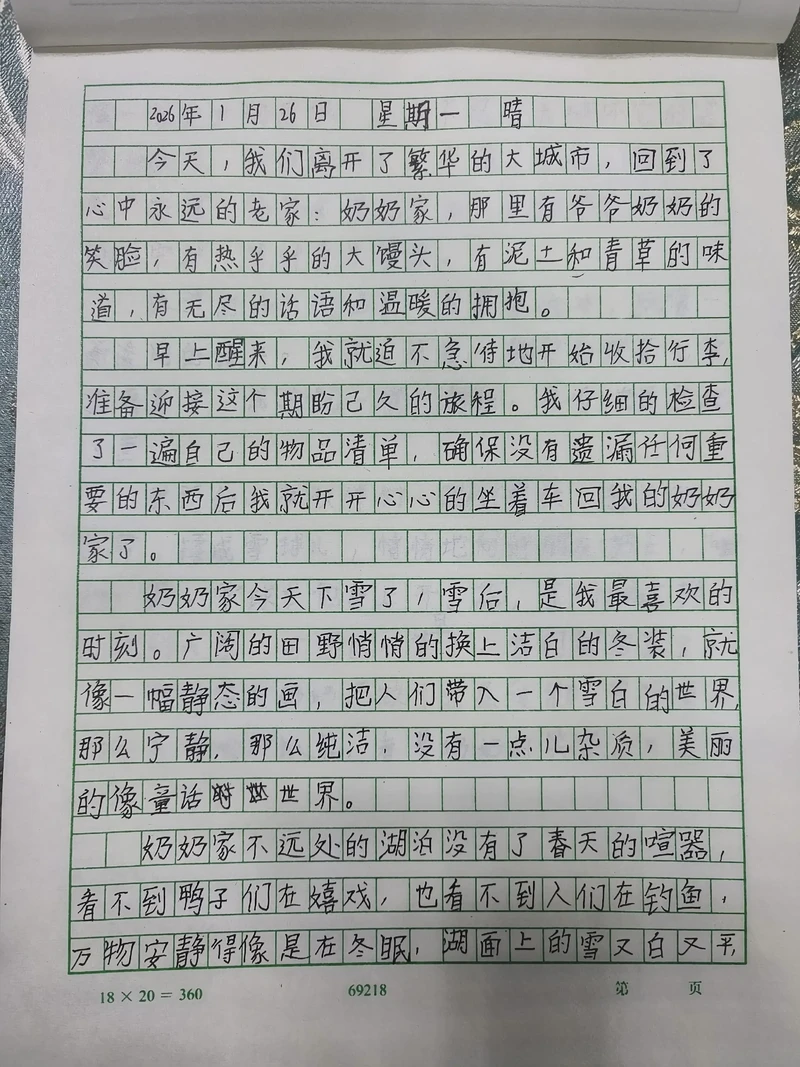 2026年1月26日 星期一 晴
今天，我们离开了繁华的大城市，回到了
心中永远的老家：奶奶家，那里有爷爷奶奶的
笑脸，有热乎乎的大馒头，有泥土和青草的味
道，有无尽的话语和温暖的拥抱。
早上醒来，我就迫不急待地开始收拾行李，
准备迎接这个期盼已久的旅程。我仔细的检查
了一遍自己的物品清单，确保没有遗漏任何重
要的东西后我就开开心心的坐着车回我的奶奶
家了。
奶奶家今天下雪了，雪后，是我最喜欢的
时刻。广阔的田野悄悄的换上洁白的冬装，就
像一幅静态的画，把人们带入一个雪白的世界，
那么宁静，那么纯洁，没有一点儿杂质，美丽
的像童话世界。
奶奶家不远处的湖泊没有了春天的喧嚣，
看不到鸭子们在嬉戏，也看不到人们在钓鱼，
万物安静得像是在冬眠，湖面上的雪又白又平，
18×20=360 69218 第 页